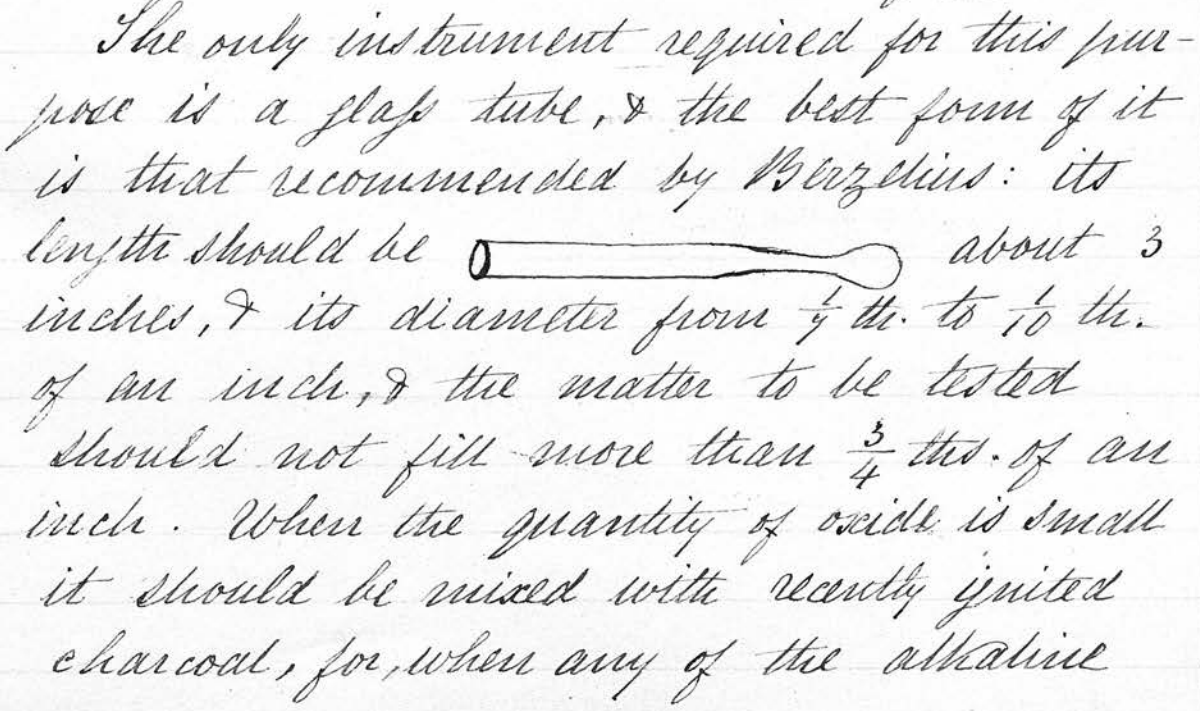 The only instrument required for this pur-
pose is a glass tube, & the best form of it
is that recommended by Berzelius: its
length should be about 3
inches, & its diameter from 1/7 th. to 1/10 th.
of an inch, & the matter to be tested
should not fill more than 3/4 ths. of an
inch. When the quantity of oxide is small
it should be mixed with recently ignited
charcoal, for, when any of the alkaline